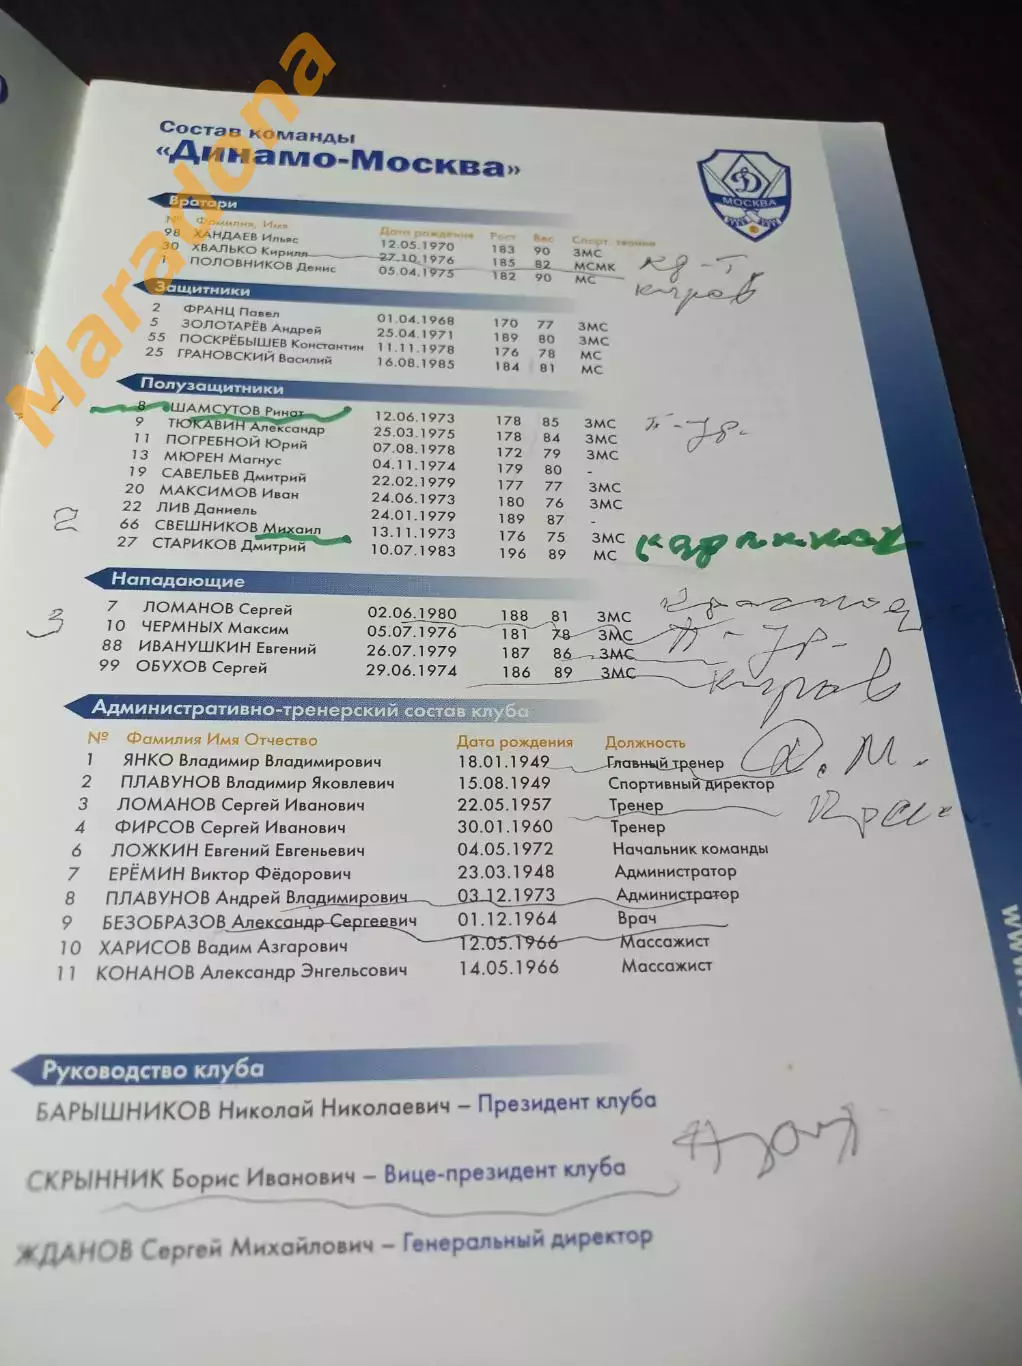 Maradona
Состав команды
«Динамо-Москва»
МОСКВА
Вратари
№ Фамилия, Имя Дата рождения Рост Вес Спорт. звание
98 ХАНДАЕВ Ильяс 12.05.1970 183 90 ЗМС
30 ХВАЛЬКО Кирилл 27.10.1976 185 82 МСМК
1 ПОЛОВНИКОВ Денис 05.04.1975 182 90 МС
Киров
Защитники
2 ФРАНЦ Павел 01.04.1968 170 77 ЗМС
5 ЗОЛОТАРЁВ Андрей 25.04.1971 189 80 ЗМС
55 ПОСКРЁБЫШЕВ Константин 11.11.1978 176 78 МС
25 ГРАНОВСКИЙ Василий 16.08.1985 184 81 МС
Полузащитники
8 ШАМСУТОВ Ринат 12.06.1973 178 85 ЗМС
9 ТЮКАВИН Александр 25.03.1975 178 84 ЗМС
11 ПОГРЕБНОЙ Юрий 07.08.1978 172 79 ЗМС
13 МЮРЕН Магнус 04.11.1974 179 80 -
19 САВЕЛЬЕВ Дмитрий 22.02.1979 177 77 ЗМС
20 МАКСИМОВ Иван 24.06.1973 180 76 ЗМС
22 ЛИВ Даниель 24.01.1979 189 87 -
2 66 СВЕШНИКОВ Михаил 13.11.1973 176 75 ЗМС
27 СТАРИКОВ Дмитрий 10.07.1983 196 89 МС
Нападающие
3 7 ЛОМАНОВ Сергей 02.06.1980 188 81 ЗМС
10 ЧЕРМНЫХ Максим 05.07.1976 181 78 ЗМС
88 ИВАНУШКИН Евгений 26.07.1979 187 86 ЗМС
99 ОБУХОВ Сергей 29.06.1974 186 89 ЗМС
Киров
Административно-тренерский состав клуба
№ Фамилия Имя Отчество Дата рождения Должность
1 ЯНКО Владимир Владимирович 18.01.1949 Главный тренер
2 ПЛАВУНОВ Владимир Яковлевич 15.08.1949 Спортивный директор
3 ЛОМАНОВ Сергей Иванович 22.05.1957 Тренер
4 ФИРСОВ Сергей Иванович 30.01.1960 Тренер
6 ЛОЖКИН Евгений Евгеньевич 04.05.1972 Начальник команды
7 ЕРЁМИН Виктор Фёдорович 23.03.1948 Администратор
8 ПЛАВУНОВ Андрей Владимирович 03.12.1973 Администратор
9 БЕЗОБРАЗОВ Александр Сергеевич 01.12.1964 Врач
10 ХАРИСОВ Вадим Азгарович 12.05.1966 Массажист
11 КОНАНОВ Александр Энгельсович 14.05.1966 Массажист
Руководство клуба
БАРЫШНИКОВ Николай Николаевич – Президент клуба
СКРЫННИК Борис Иванович – Вице-президент клуба
ЖДАНОВ Сергей Михайлович – Генеральный директор
www.